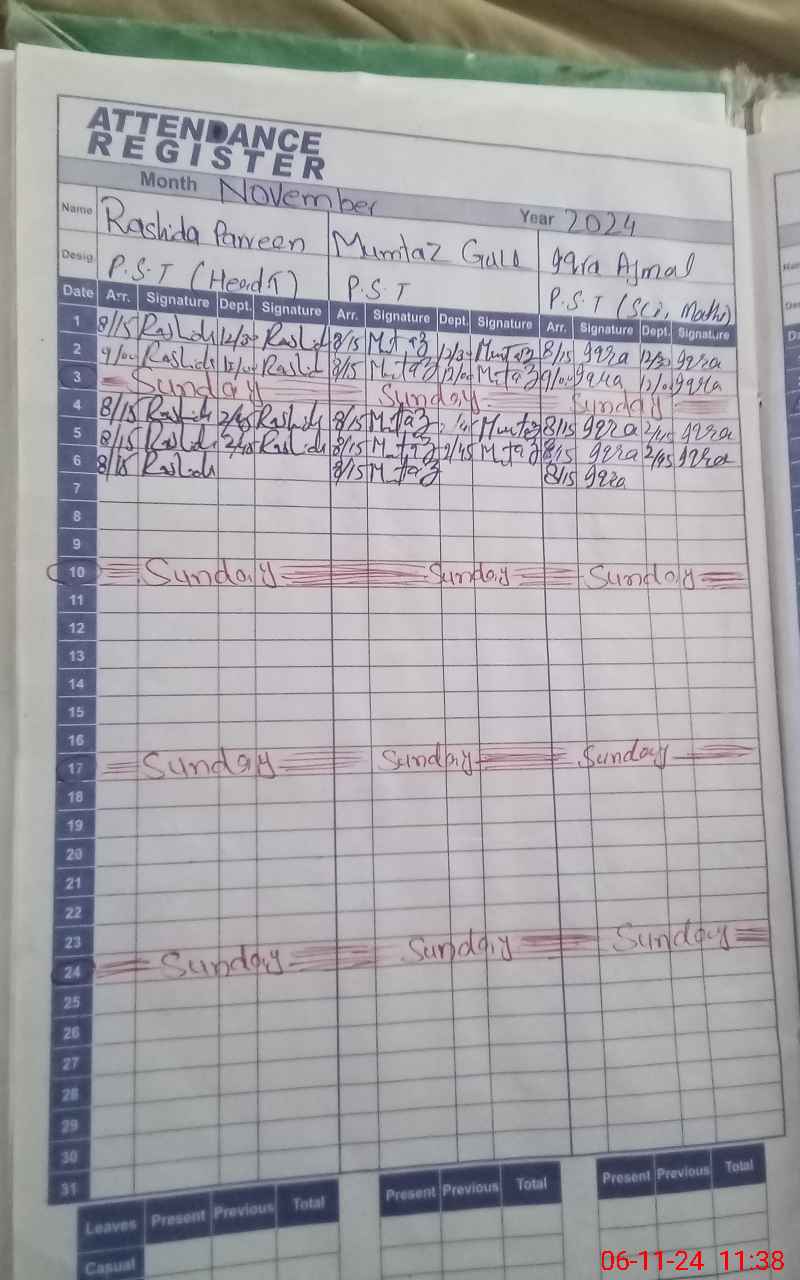 ATTENDANCE
REGISTER
Month November Year 2024
Name Rashida Parveen Mumtaz Gull Iqra Ajmal
Desig. P.S.T (Head T) P.S.T P.S.T (Sci, Maths)
Date Arr. Signature Dept. Signature Arr. Signature Dept. Signature Arr. Signature Dept. Signature
1 8/15 Rashida 12/30 Rashid 8/15 Mumtaz 12/30 Mumtaz 8/15 Iqra 12/30 Iqra
2 9/00 Rashida 12/00 Rashid 8/15 Mumtaz 12/00 Mumtaz 9/00 Iqra 12/00 Iqra
3 Sunday Sunday Sunday
4 8/15 Rashida 2/45 Rashida 8/15 Mumtaz Mumtaz 8/15 Iqra 2/45 Iqra
5 8/15 Rashida 2/45 Rashida 8/15 Mumtaz 2/45 Mumtaz 8/15 Iqra 2/45 Iqra
6 8/15 Rashida 8/15 Mumtaz 8/15 Iqra
7
8
9
10 Sunday Sunday Sunday
11
12
13
14
15
16
17 Sunday Sunday Sunday
18
19
20
21
22
23
24 Sunday Sunday Sunday
25
26
27
28
29
30
31
Leaves Present Previous Total Present Previous Total Present Previous Total
Casual
06-11-24 11:38